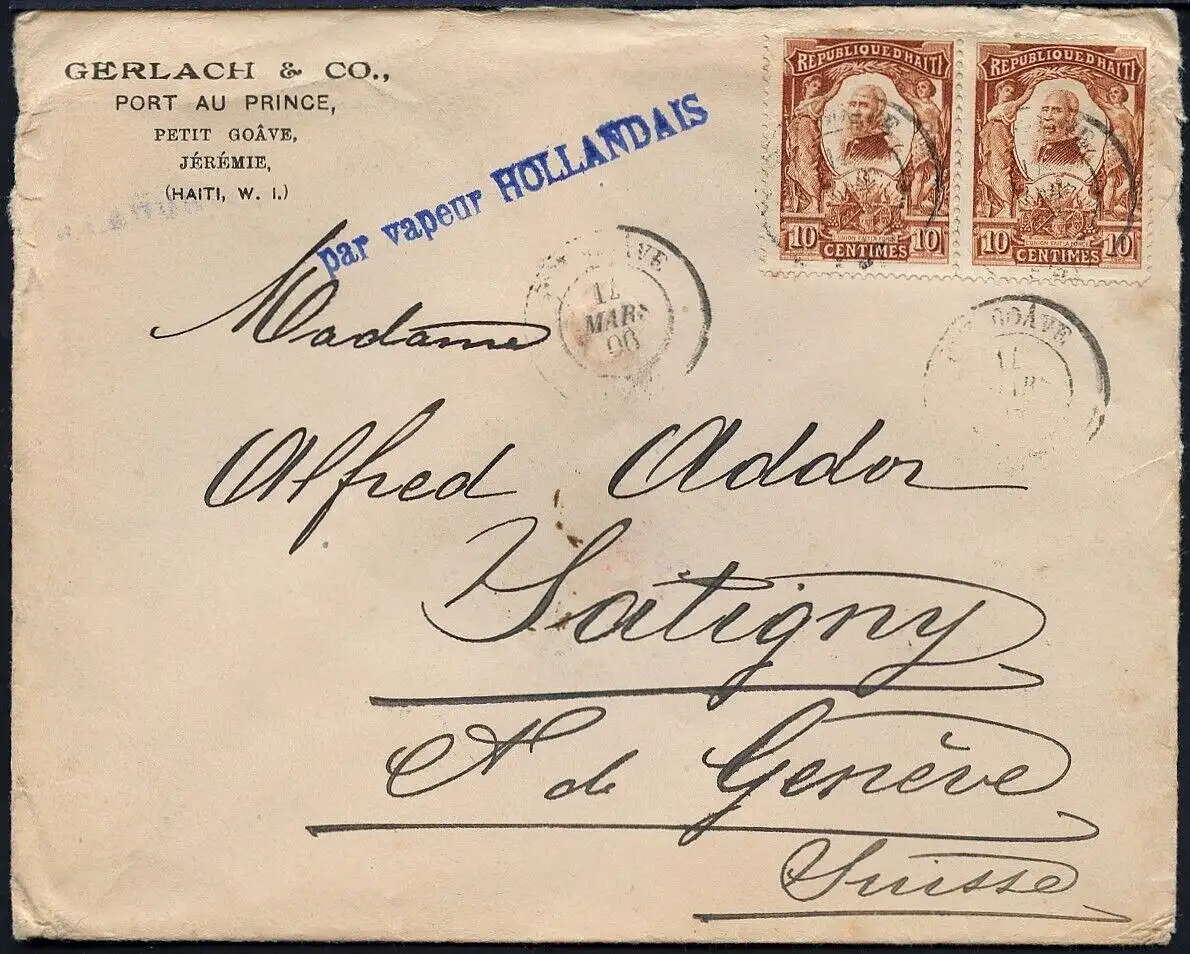 GERLACH & CO.,
PORT AU PRINCE,
PETIT GOÂVE,
JÉRÉMIE,
(HAITI, W. I.)
par vapeur HOLLANDAIS
REPUBLIQUE D'HAITI
10 CENTIMES 10
REPUBLIQUE D'HAITI
L'UNION FAIT LA FORCE
10 CENTIMES 10
GOÂVE
MARS
GOÂVE
Madame
Alfred Addor
Satigny
Ct de Genève
Suisse